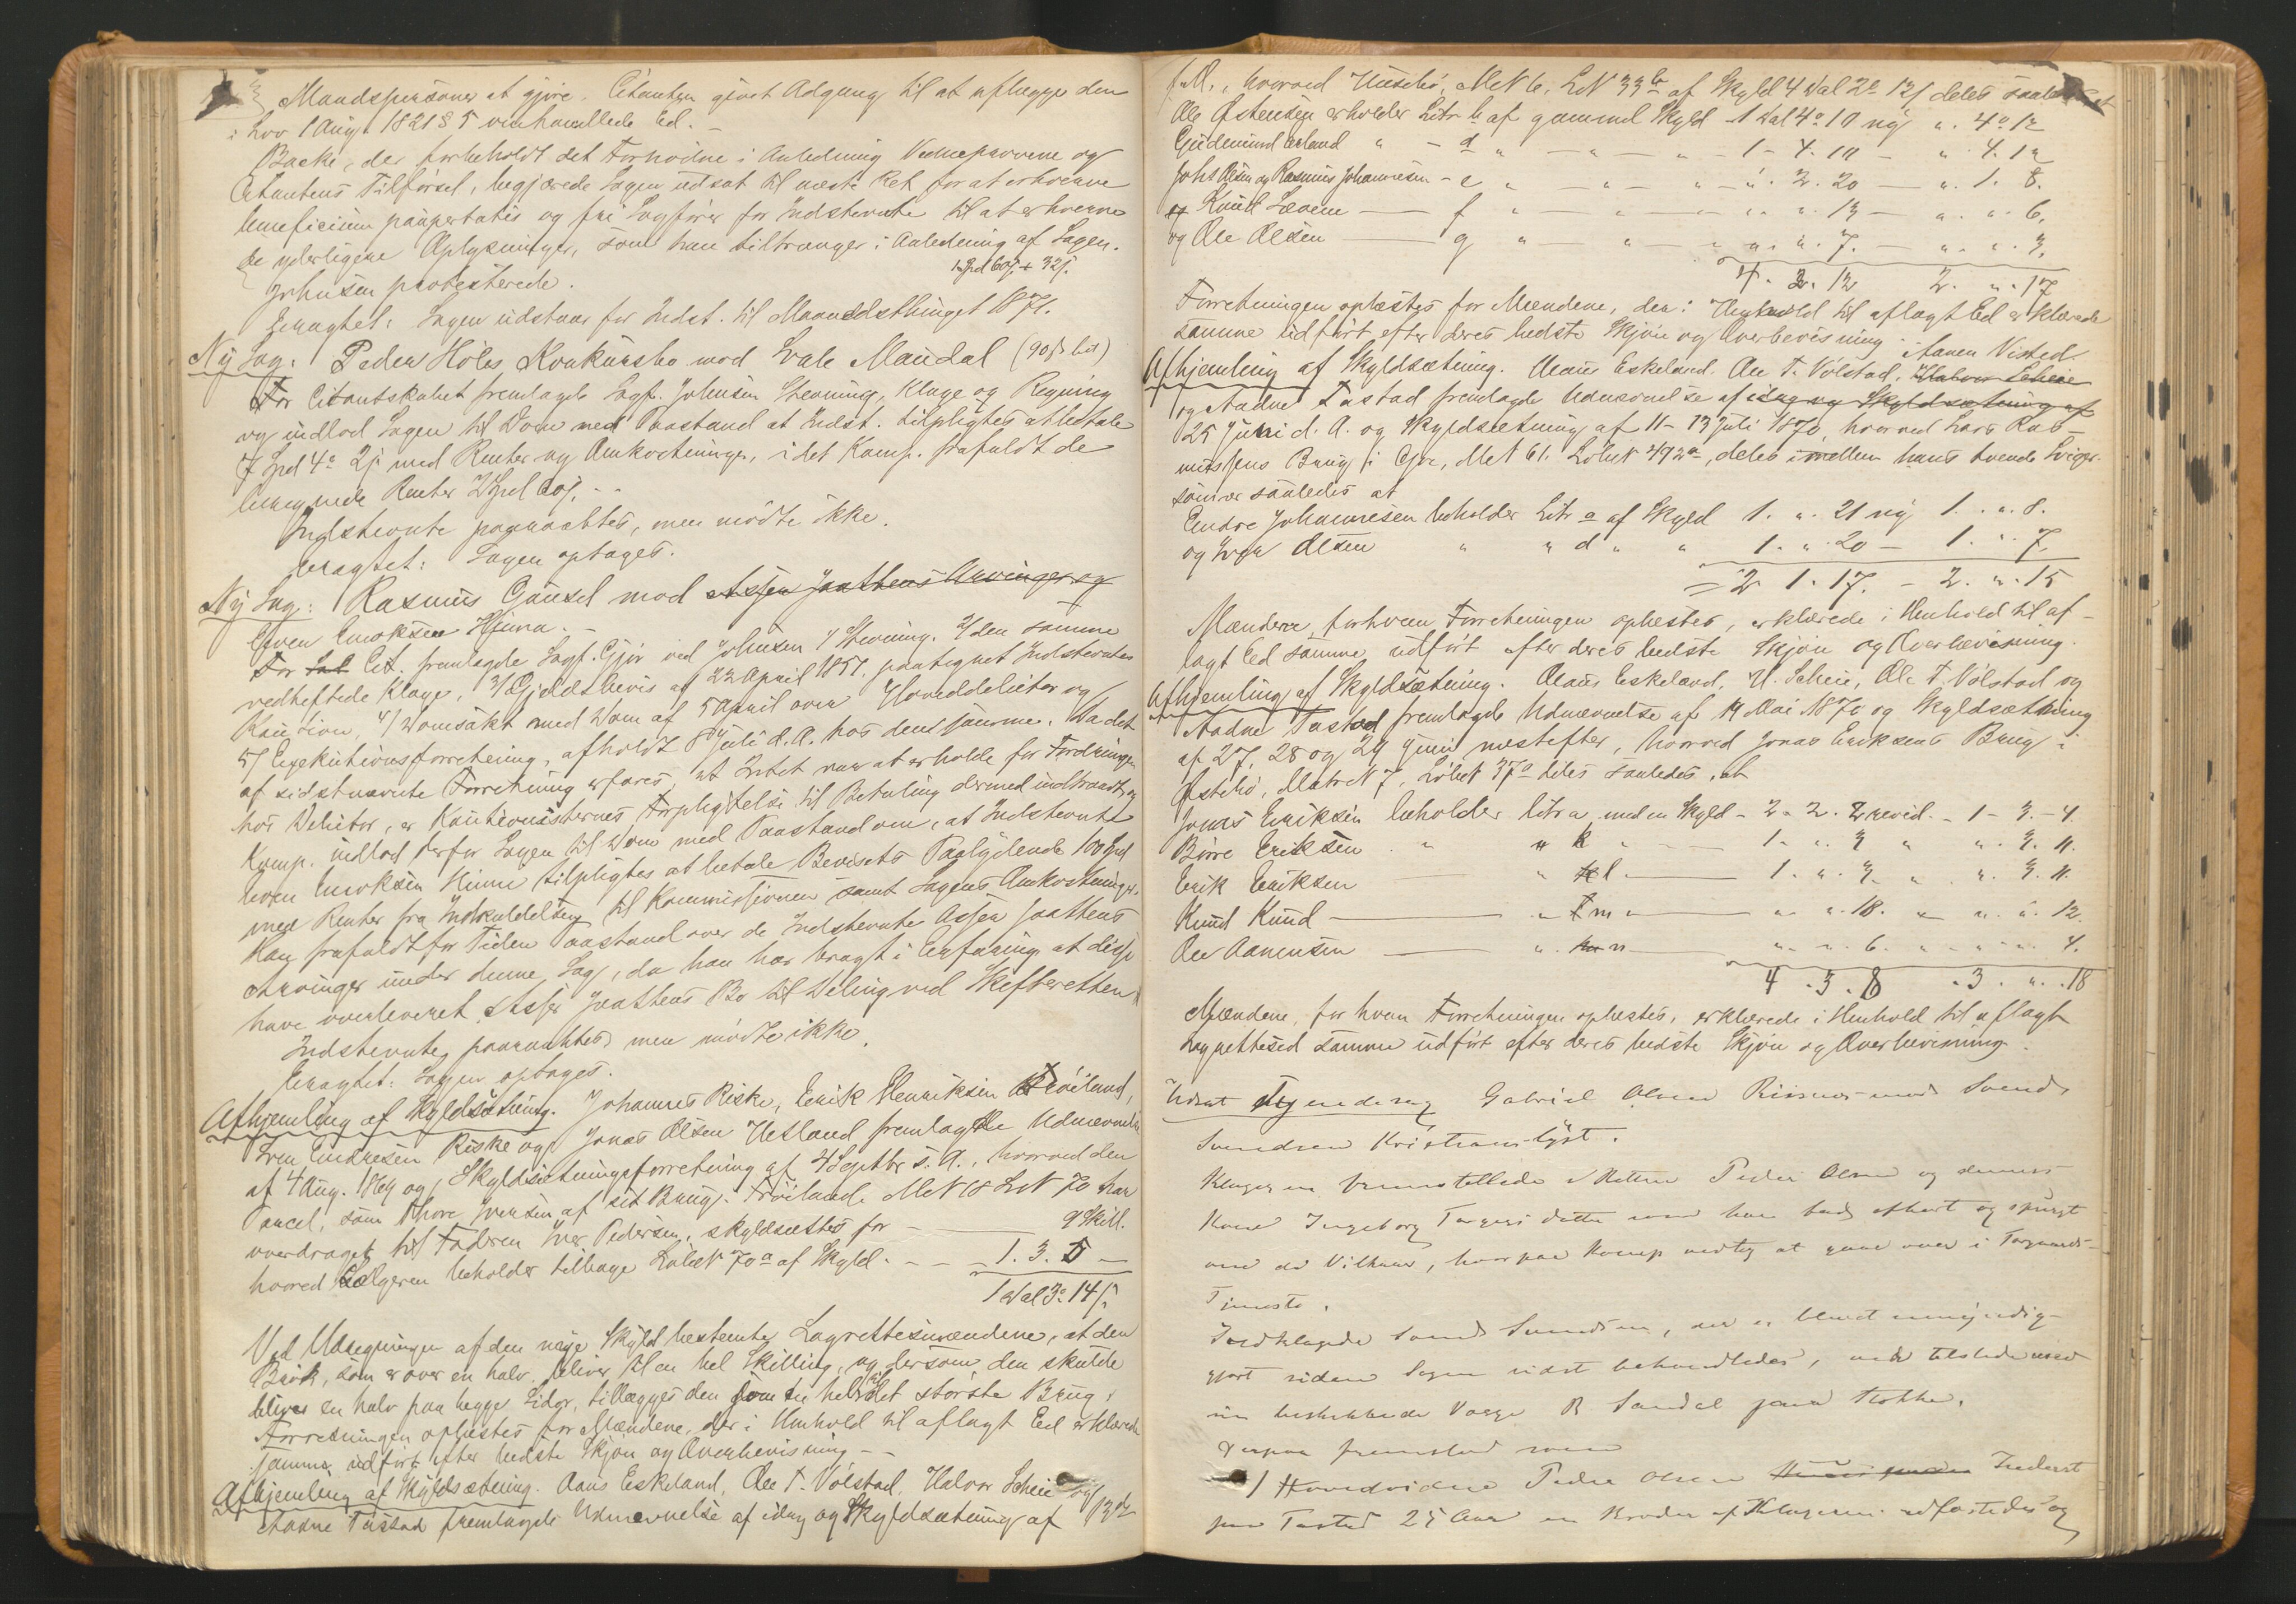 Mandspersoner at gjøre. Citanten givet Adgang til at aflægge den
i Lov 1 Aug. 1821 § 5 omhandlede Ed. –
Backe, der forbeholdt det Fornødne i Anledning Vidneprovene og
Citantens Tilførsel, begjærede Sagen udsat til næste Ret for at erhverve
beneficium paupertatis og fri Sagfører for Indstevnte til at erhverve
de yderligere Oplysninger, som han tiltrænger i Anledning af Sagen.
Johnsen protesterede.
Eragtet: Sagen udstaar for Indst. til Maanedsthinget
Ny Sag. Peder Høles Konkursbo mod Evale Maudal (90 s bet)
For Citantskabet fremlagde Sagf. Johnsen Stevning, Klage og Regning
og indlod Sagen til Dom med Paastand at Indst. tilpligtes at betale
7 Spd 4 o 2 s med Renter og Omkostninger, idet Komp. frafaldt de
beregnede Renter 2 Spd 60 s. –
Indstevnte paaraabtes, men mødte ikke.
Eragtet: Sagen optages.
Ny Sag: Rasmus Gausel mod Asser Jaathens Arvinger og
Even Enoksen Hinna. –
For Cit. fremlagde Sagf. Gjør ved Johnsen 1/ Stevning. 2/ den samme
vedheftede Klage, 3/ Gjeldsbevis af 22 April 1857. paategnet Indstevntes
Kaution, 4/ Domsakt med Dom af 5 April over Hoveddebitor og
5/ Exekutionsforretning, afholdt 8 Juli d.A. hos den samme. Da det
af sidstnævnte Forretning erfares, at Intet var at erholde for Fordringen
hos Debitor, er Kautionisternes Forpligtelse til Betaling dermed indtraadt, og
Komp. indlod derfor Sagen til Dom med Paastand om, at Indstevnte
Even Enoksen Hinna tilpligtes at betale Bevisets Paalydende 100 Spd
med Renter fra til Kommissionen samt Sagens Omkostninger.
Han frafaldt for Tiden Paastand over de Indstevnte Asser Jaathens
Arvinger under denne Sag, da han har bragt i Erfaring at disse
have overleveret Asser Jaathens Bo til Deling ved Skifteretten.
Indstevnte paaraabtes men mødte ikke.
Eragtet: Sagen optages.
Afhjemling af Skyldsætning. Johannes Riske, Erik Henriksen Frøiland,
Iver Endresen Riske og Jonas Olsen Hetland fremlagde Udnævnelse
af 4 Aug. 1869 og Skyldsætningsforretning af 4 Septbr s.A., hvorved den
Parcel, som Thore Iversen af sit Brug i Frøiland MN 18 LN 70 har
overdraget til Faderen Iver Pedersen, skyldsættes for – 9 Skill.
hvored Sælgeren beholder tilbage LøbeN 70 a af Skyld. – – – 1. 3. 5 –
1 Dal 3 o 14 s.
Ved Udregningen af den nye Skyld bestemte Lagrettesmændene, at den
Brøk, som er over en halv, bliver til en hel Skilling, og dersom den skulde
blive en halv paa begge Sider, tillægges den som en hel til det største Brug.
Forretningen oplæstes for Mændene, der i Henhold til aflagt Ed erklærede
samme udført efter bedste Skjøn og Overbevisning –
Afhjemling af Skyldsætning. Aans Eskeland, Ole T. Vølstad, Halvor Scheie og
Aadne Tastad fremlagde Udnævnelse af idag og Skyldsætning af 13de
f.M., hvorved MN 6, LN 33 b af Skyld 4 Dal 2 o 12 s deles saaledes at
Ole Østensen erholder Litr b af gammel Skyld 1 Dal 4 o 10 ny " 4 o 12
Gudmund " – d " – " – " – 1 – 4. 10 – " 4. 12
Johs Olsen og Rasmus Johannesen – e " – " – " – " . 2. 20 – ". 1. 8.
og Knud – f " – " – ". ". 13 – ". ". 6.
og Ole Olsen – g " – " – " ". ". 7. – ". ". 3.
4. 2. 12 2. ". 17
Forretningen oplæstes for Mændene, der i Henhold til aflagt Ed erklærede
samme udført efter deres bedste Skjøn og Overbevisning.
Aanen Visted
Afhjemling af Skyldsætning. Aans Eskeland. Ole T. Vølstad, Halvor Scheie
og Aadne Tastad fremlagde Udnævnelse af idag og Skyldsætning af
25 Juni d.A. og Skyldsætning af 11 – 13 Juli 1870, hvorved Lars Ras-
mussens Brug i MN 61. LøbeN 492 a, deles imellem hans tvende Sviger-
sønner saaledes at
Endre Johannesen beholder Litr a af Skyld 1. ". 21 ny 1. ". 8.
og Iver Olsen " " d " " 1. ". 20 – 1. ". 7.
= 2 1. 17. – 2. ". 15
Mændene forhvem Forretningen oplæstes, erklærede i Henhold til af-
lagt Ed samme udført efter deres bedste Skjøn og Overbevisning.
Afhjemling af Skyldsætning. Aans Eskeland, H. Scheie, Ole T. Vølstad og
Aadne Tastad fremlagde Udnævnelse af 14 Mai 1870 og Skyldsætning
af 27, 28 og 29 Juni næstefter, hvorved Jonas Eriksens Brug i
Østebø, MatrN 7, LøbeN 37 a deles saaledes, at
Jonas Eriksen beholder litr a med en Skyld – 2 – 2. 2 revid. – 1 – 3. – 4.
Børre Eriksen " " k " 1. ". 3 " ". 3. 11.
Erik Eriksen – " l – 1. ". 3. " ". 3. 11.
Knud Knud – " m " – " ". 18. – ". ". 12.
Ole Aanensen – " n – " ". 6. " ". ". 4.
4. 3. 8 . 3. ". 18
Mændene, for hvem Forretningen oplæstes, erklærede i Henhold til aflagt
Lagrettesed samme udført efter deres bedste Skjøn og Overbevisning.
Udsat Tyendesag Gabriel Olsen mod Svend
Svendsen Kristianslyst.
Klageren fremstillede i Retten Peder Olsen og dennes
Kone Ingeborg Torgersdatter som han bad afhørt og spurgt
om de Vilkaar, hvorpaa Komp vedtog at gaae over i
Tjeneste.
Indklagede Svend Svendsen, der er blevet umyndig-
gjort siden Sagen sidst behandledes, var tilstede med
sin beskikkede Værge R Sandal paa Stokke.
Derpaa fremstod som
1/ Hovedvidne Peder Olsen Inderst
paa Tasted 25 Aar en Broder af Klageren. edfæstedes og